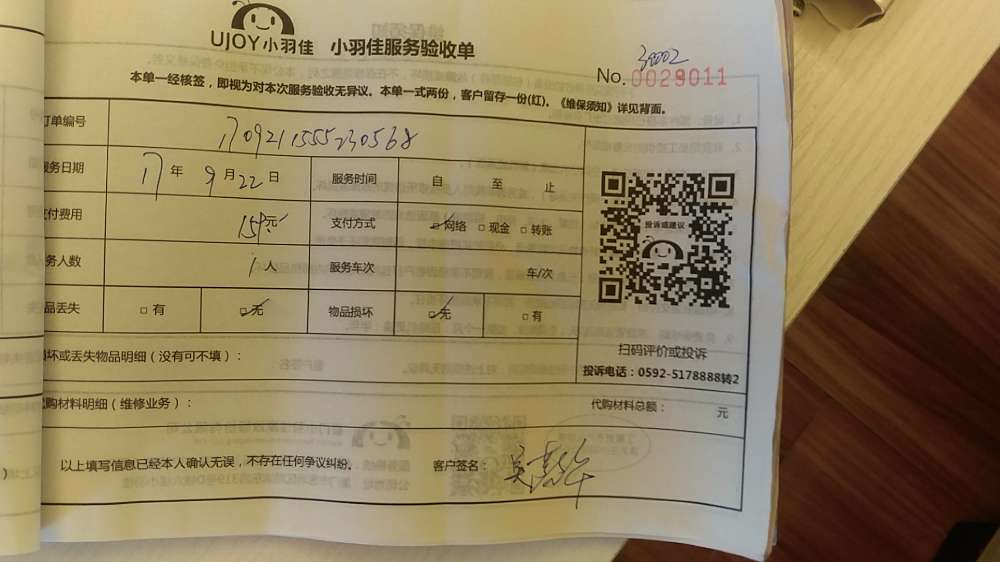 UJOY小羽佳 小羽佳服务验收单
39002
No. 0029011
本单一经核签，即视为对本次服务验收无异议。本单一式两份，客户留存一份(红)。《维保须知》详见背面。
订单编号 1709211555230568
服务日期 17 年 9 月 22 日 服务时间 自 至 止
支付费用 159元 支付方式 网络 现金 转账
务人数 1 人 服务车次 车/次
品丢失 有 无 物品损坏 无 有
投诉或建议
扫码评价或投诉
投诉电话：0592-5178888转2
损坏或丢失物品明细（没有可不填）：
代购材料明细（维修业务）： 代购材料总额： 元
以上填写信息已经本人确认无误，不存在任何争议纠纷。 客户签名：